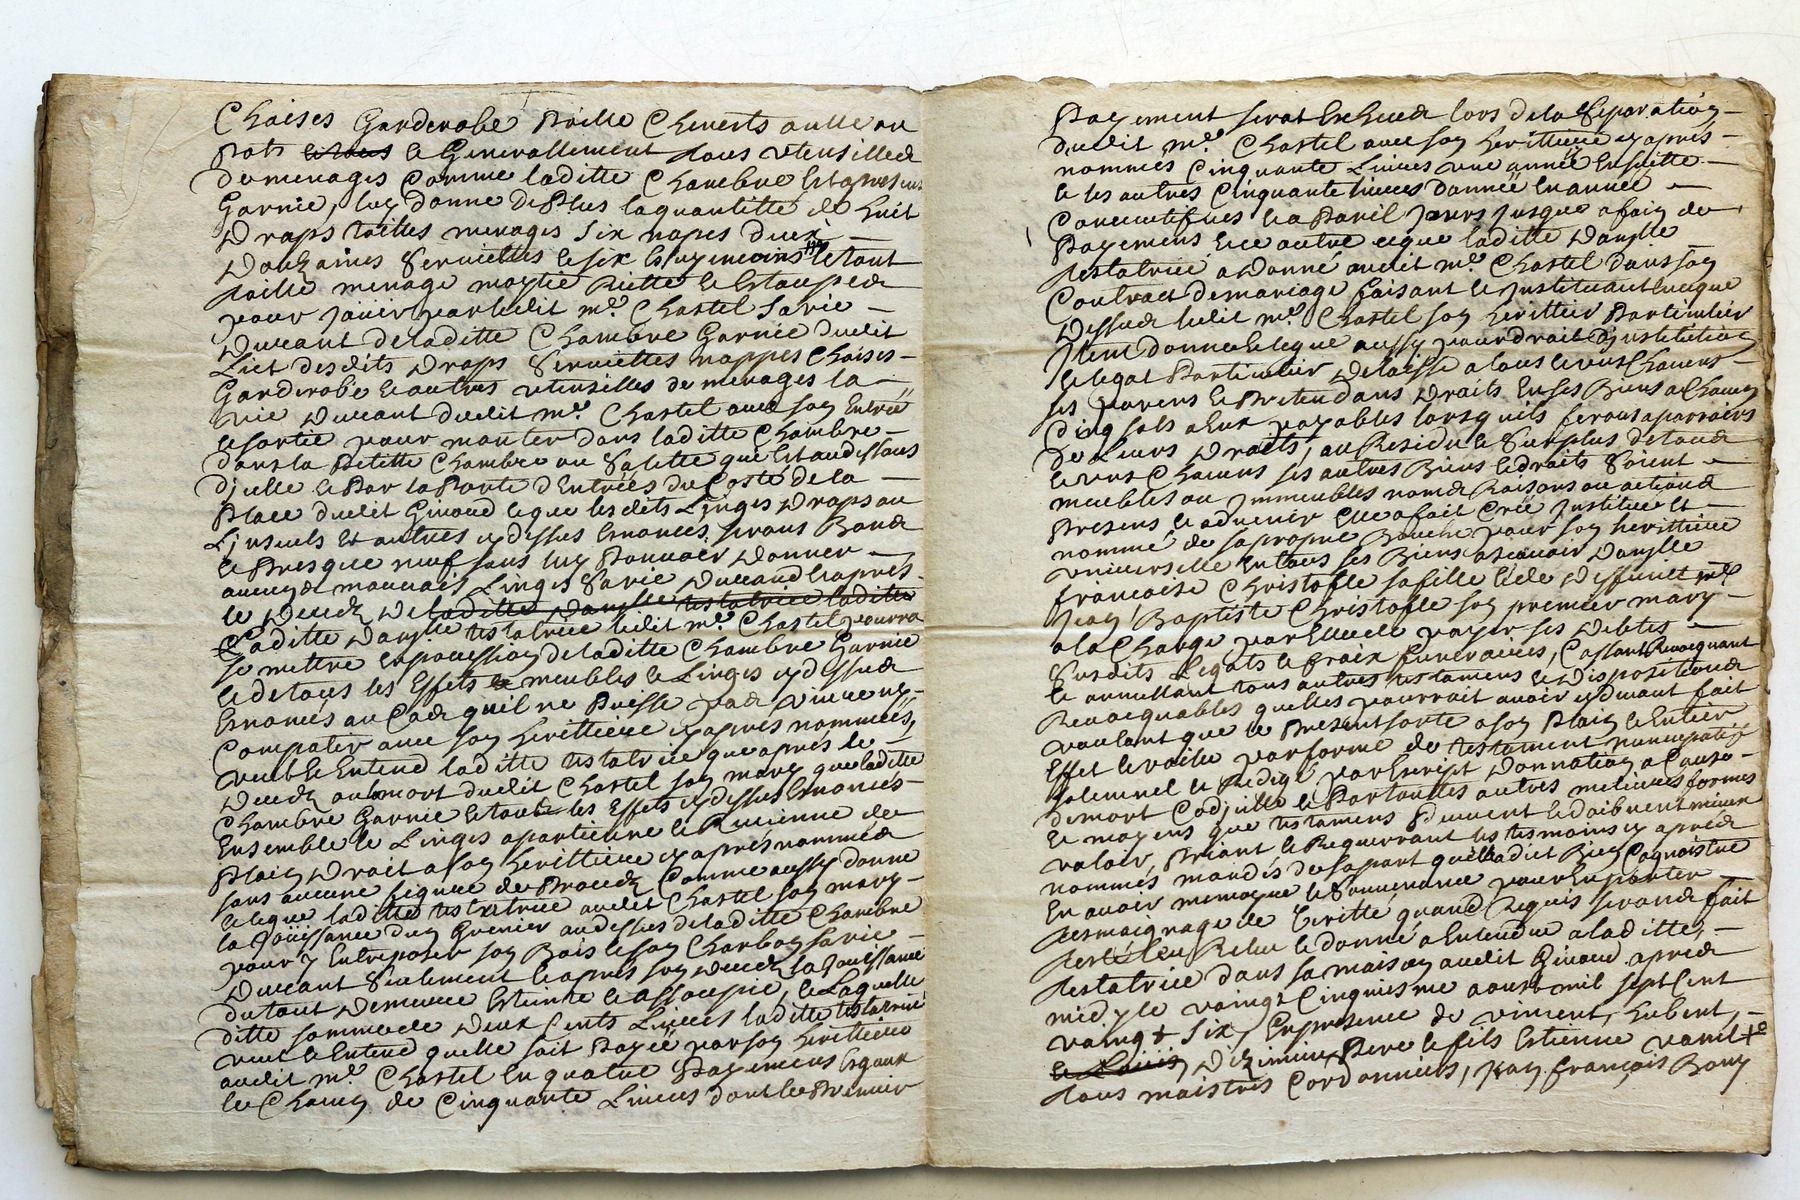 Chaises Garderobe Poille Chenests aulle ou
Pots et Generallement tous utensilles
de menages comme laditte Chambre est apresent
Garnie, luy donne de Plus la quantitté de huit
Draps toilles menages six napes deux
Douzaines Serviettes le tout
toille menage moytié Ritte et Estoupes
pour jouir par ledit mre. Chastel sa vie
Durant de laditte Chambre Garnie dudit
Lict desdits Draps Serviettes nappes Chaises
Garderobe et autres utensilles de menages la
vie Durant dudit mre. Chastel avec son Entrée
et sortie pour monter dans laditte Chambre
dans la Petitte Chambre ou Salette que est au dessous
d'jcelle et Par la Porte d'Entrées du Costé de la
Place dudit Givord et que lesdits Linges Draps ou
Linseuls et autres cy dessus Enoncés seront Bons
et Presque neuf sans luy Pouvoir Donner
aucuns mauvais Linges Sa vie Durand et apres
le Decedz De laditte Danslle testatrice laditte
Laditte Danslle testatrice ledit mre. Chastel pourra
se mettre en possession de laditte Chambre Garnie
et de tous les Effets et meubles et Linges cy dessus
Enoncés au Cas quil ne Puisse pas vivre ny
Compatir avec son herittiere cy apres nommées,
veut et Entend laditte testatrice que aprés le
Decedz ou mort dudit Chastel son mary que laditte
Chambre Garnie et tout les Effets cy dessus Enoncés
Ensemble et Linges apartienne et Revienne de
Plain Droit a son herittiere cy aprés nommée
sans aucune figure de Procedz Comme aussy donne
et legue laditte testatrice audit Chastel son mary
la Jouissance d'un Grenier au dessus de laditte Chambre
pour y Entreposer son Bois et son Charbon sa vie
Durant Seulement et apres son Decedz la Jouissance
du tout Demeure Esteinte et assoupie, et Laquelle
ditte somme de Deux Cents Livres laditte testatrice
veut et Entend quelle soit Payée par son herittiere
audit mre. Chastel En quatre Payemens Egaux
et Chacun de Cinquante Livres dont le Premier
Payement serat Escheus lors de la Separation
dudit mre. Chastel avec son herittiere cy aprés
nommés Cinquante Livres une année Ensuitte
et les autres Cinquante livres d'année En année
Consecutifves et a Pareil jours jusque a fain de
Payemens et ce outre ce que laditte Danslle
testatrice a Donné audit mre. Chastel dans son
Contract de mariage faisant et Instituant En ce que
Dessus ledit mre. Chastel son herittier Particulier
Item donne et legue aussy pour droit d'institution
et legat Particulier Delaisse a tous et uns Chacuns
ses parens et Pretendans Droits En ses Biens a Chacun
Cinq sols a Eux payables lorsquils feront aparroire
de Leurs Droits, au Residu et Surplus de tous
et uns Chacuns ses autres Biens et droits Soient
meubles ou Immeubles noms Raisons ou actions
Presens et advenir Elle a fait Créé Instituée et
nommé de sa propre Bouche pour son herittiere
universelle En tous ses Biens asçavoir Danslle
françoise Christofle sa fille et de Deffunct mre.
Jean Baptiste Christofle son premier mary
a la Charge par Elle de payer ses Debtes
Susdits Legats et fraix funeraires, Cassant Revocquant
et annullant tous autres testamens et Dispositions
Revocquables quelles pourrait avoir cy devant fait
voulant que le Present sorte a son Plain et Entier
Effet et vaille par forme de testament nuncupatif
solemnel et Redigé par Escript Donnation a Cause
de mort Codjcille et Par toutes autres meilieurs formes
et moyens que testamens Peuvent et doibvent mieux
valoir, Priant et Requerrant les tesmoins cy aprés
nommés mandés de sa part quelle a dit Bien Cognoistre
En avoir memoyre et Souvenance pour En porter
tesmoignage de Veritté quand Requis seront fait
testé leu Releu et donné a Entendre a laditte,
testatrice dans sa maison audit Givord apres
midy le vaingt Cinquiesme aoust mil sept Cent
vaingt Six, En presence de vincent, hubert,
et Pere et fils Estienne
tous maistres Cordonniers, Jean françois Rony